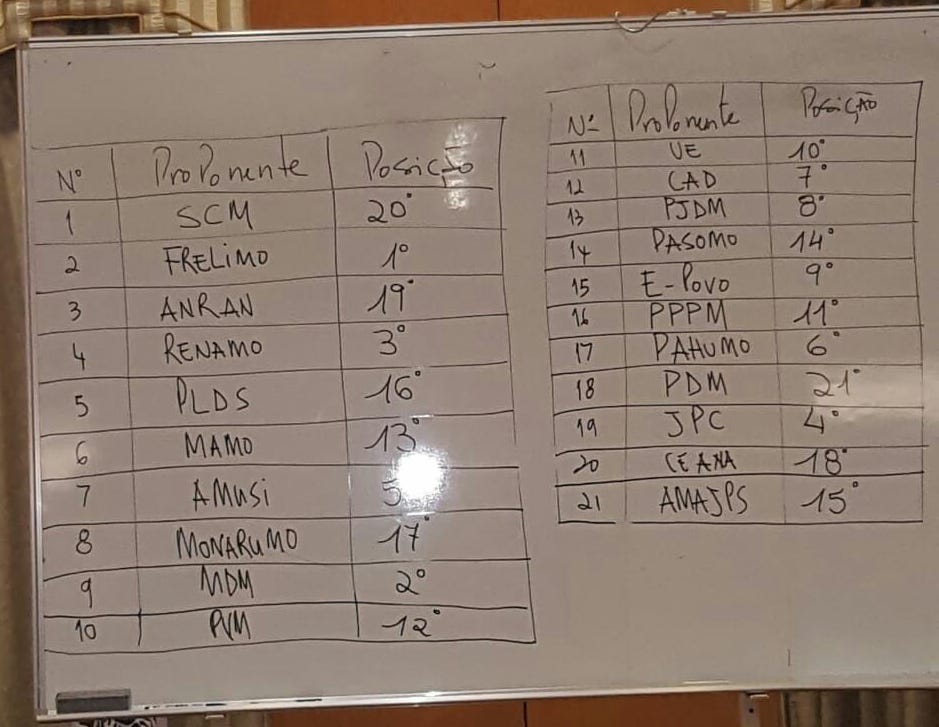 Nº Proponente Posição
1 SCM 20º
2 FRELIMO 1º
3 ANRAN 19º
4 RENAMO 3º
5 PLDS 16º
6 MAMO 13º
7 AMUSI 5
8 MONARUMO 17º
9 MDM 2º
10 PVM 12º
Nº Proponente Posição
11 UE 10º
12 CAD 7º
13 PJDM 8º
14 PASOMO 14º
15 E-Povo 9º
16 PPPM 11º
17 PAHUMO 6º
18 PDM 21º
19 JPC 4º
20 CEANA 18º
21 AMAJPS 15º